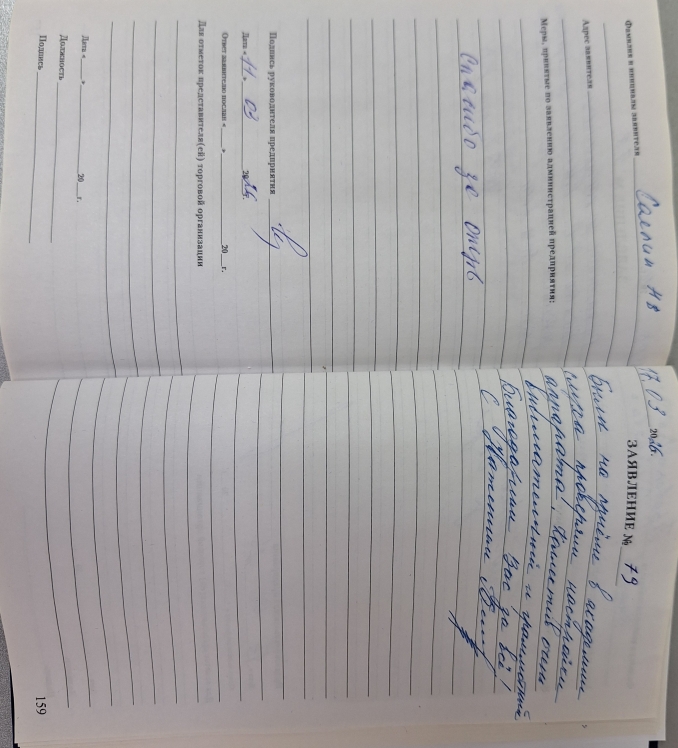 Фамилия и инициалы заявителя Саепин НВ
Адрес заявителя
Меры, принятые по заявлению администрацией предприятия:
Спасибо за отзыв
Подпись руководителя предприятия
Дата « 11. 03 20 26 г.
Ответ заявителю послан « » 20 г.
Для отметок представителя(ей) торговой организации
Дата « » 20 г.
Должность
Подпись
17.03 2026.
ЗАЯВЛЕНИЕ № 79
Были на приёме в академии
слуха проверяли настройки
аппарата!
внимательный и грамотный
Благодарим Вас за всё!
С Уважением
159